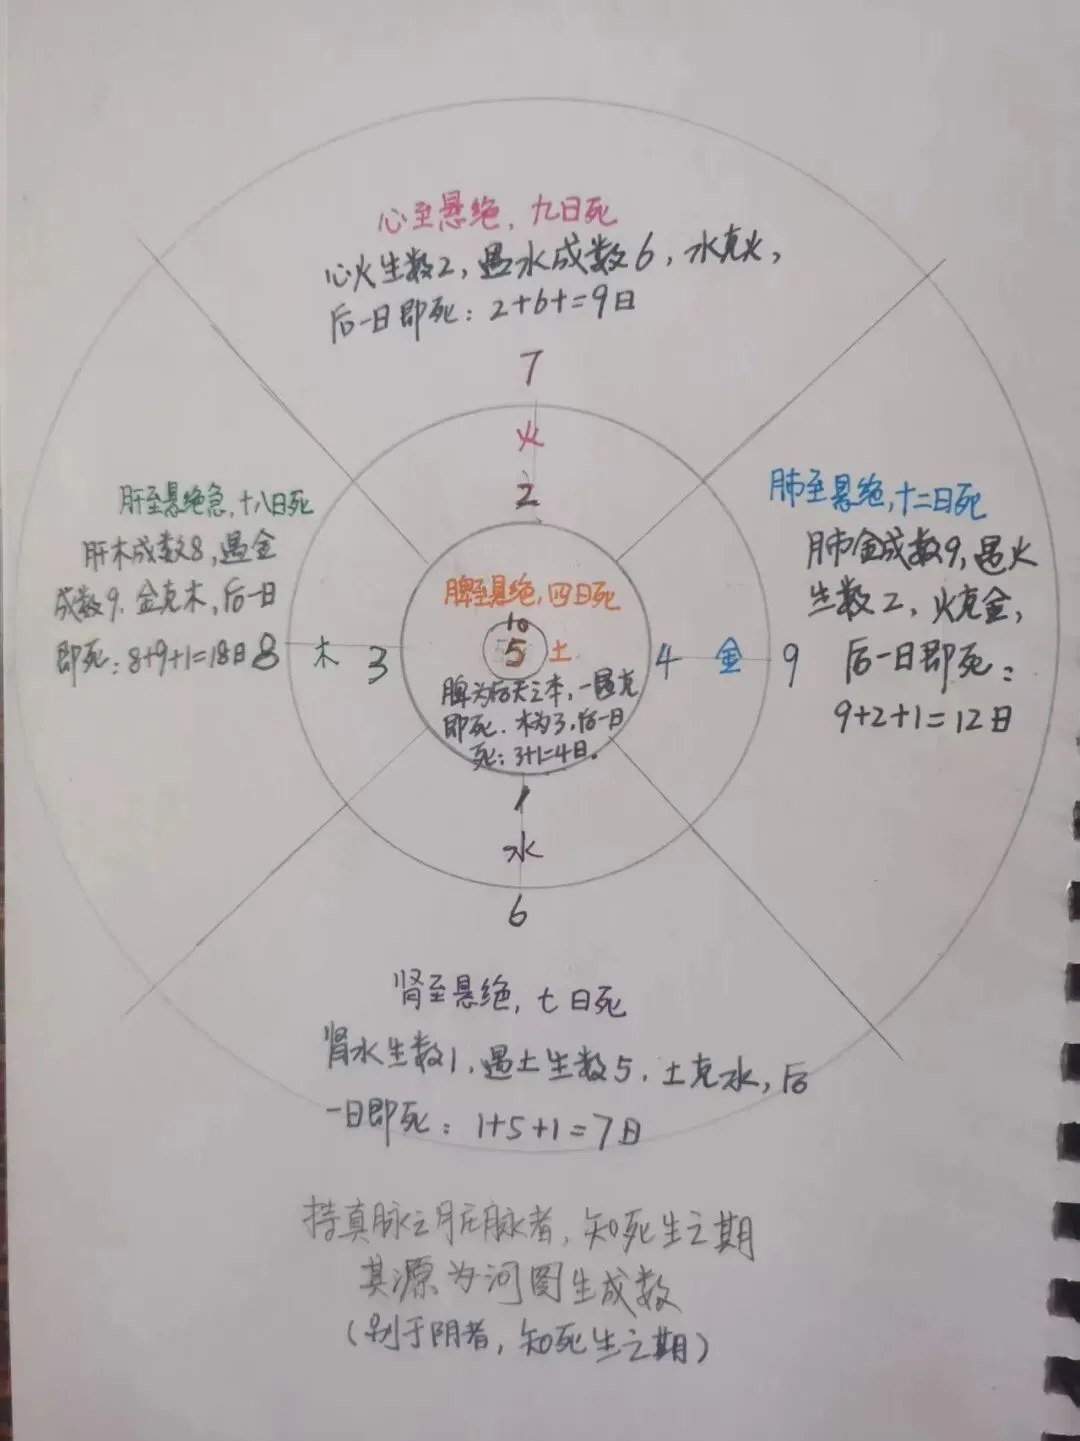 心至悬绝，九日死
心火生数2，遇水成数6，水克火，
后一日即死：2+6+=9日
7
火
2
肝至悬绝急，十八日死
肝木成数8，遇金
成数9．金克木，后一日
即死：8+9+1=18日
8 木 3
脾至悬绝，四日死
10
5 土
脾为后天之本，一遇克
即死．木为3，后一日
死：3+1=4日．
4 金 9
肺至悬绝，十二日死
肺金成数9，遇火
生数2，火克金，
后一日即死：
9+2+1=12日
1
水
6
肾至悬绝，七日死
肾水生数1，遇土生数5．土克水，后
一日即死：1+5+1=7日
持真脉之脏脉者，知死生之期
其源为河图生成数
（别于阴者，知死生之期）